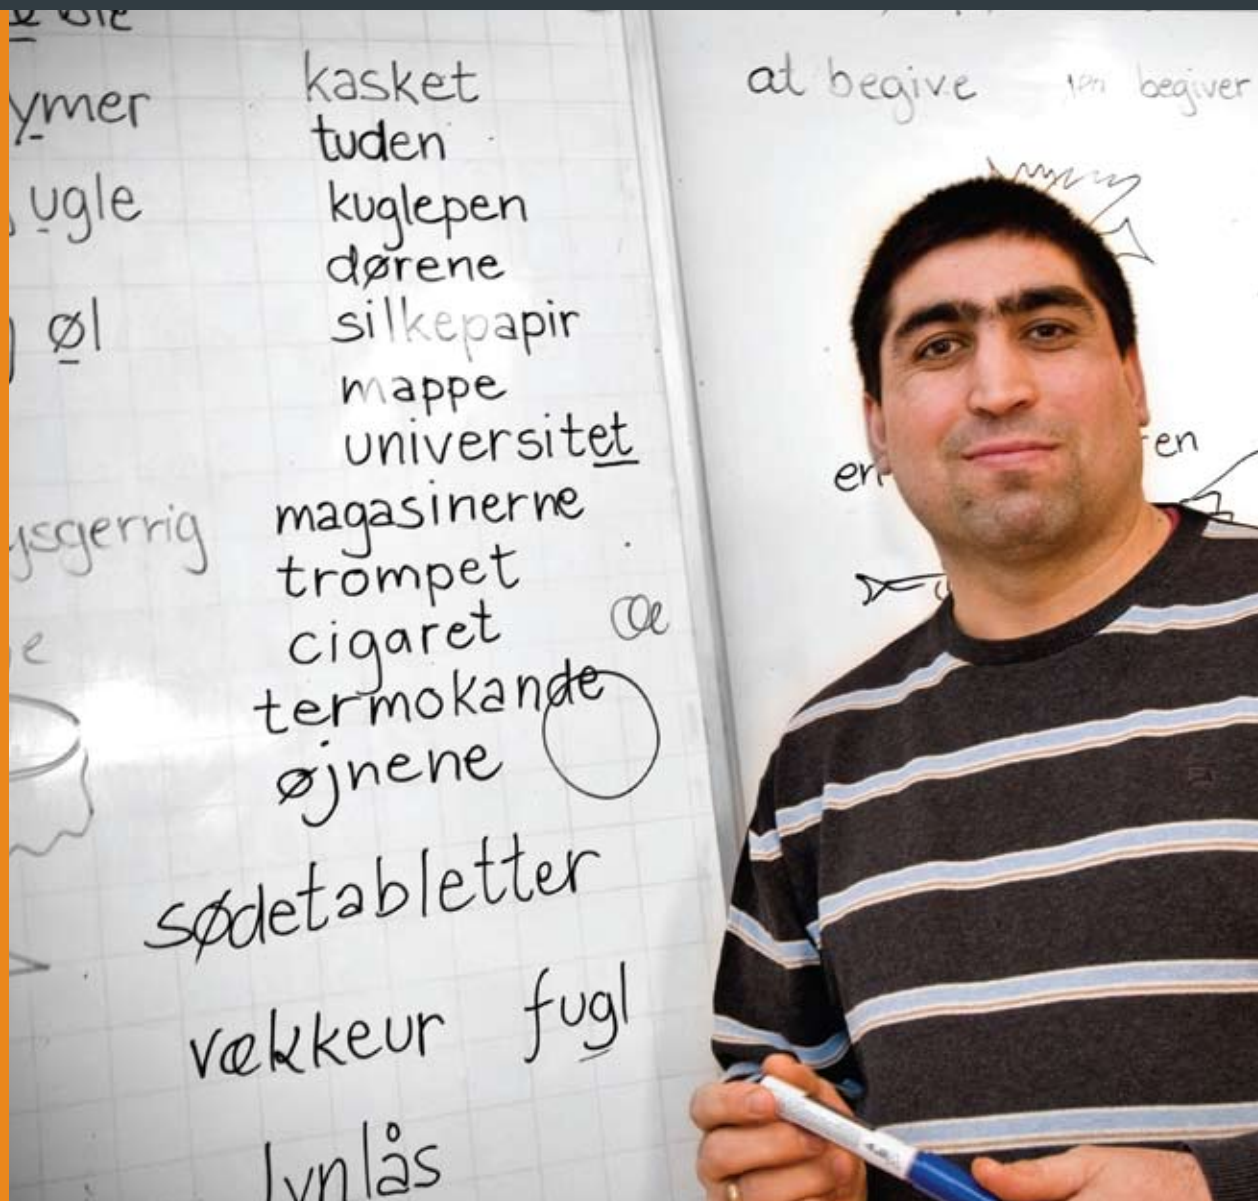 ymer
ugle
øl
kasket
tuden
kuglepen
dørene
silkepapir
mappe
universitet
magasinerne
trompet
cigaret
termokande
øjnene
sødetabletter
vækkeur fugl
lynlås
æ
at begive begiver
en
en